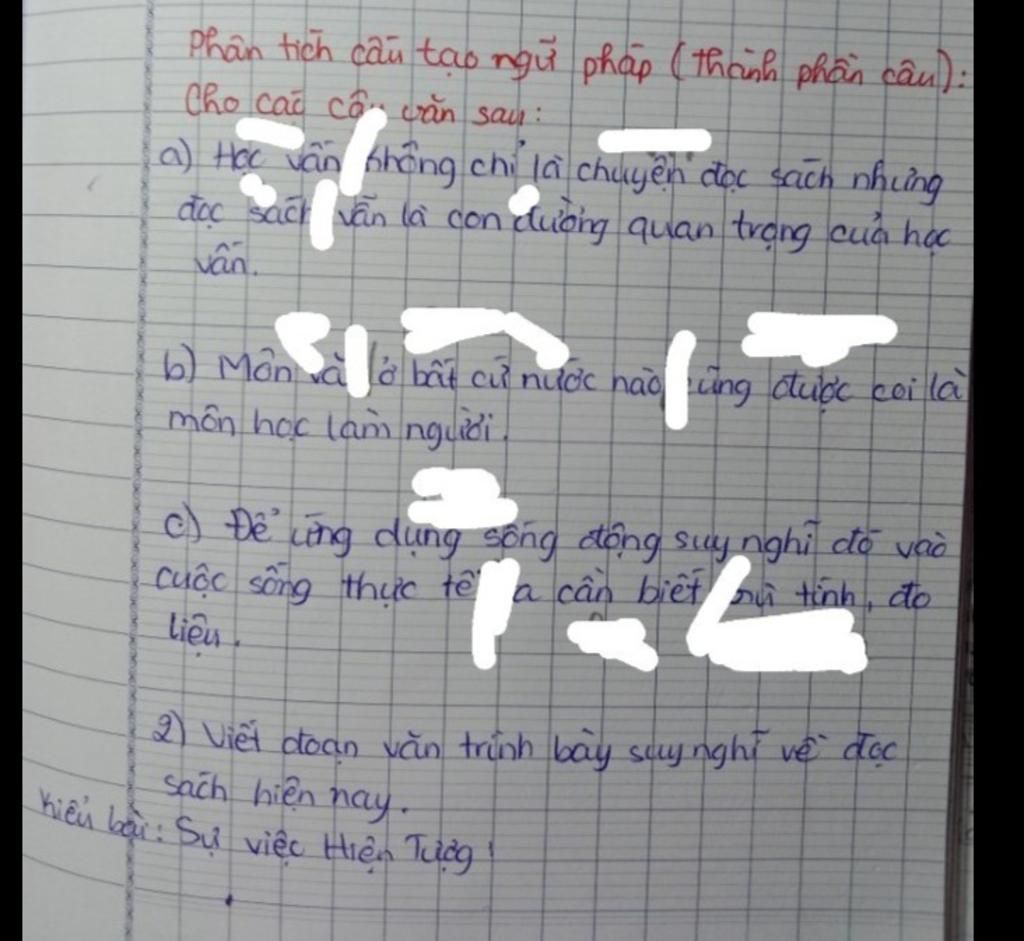 Phân tích cấu tạo ngữ pháp (thành phần câu):
Cho các câu văn sau:
a) Học vấn không chỉ là chuyện đọc sách nhưng
đọc sách vẫn là con đường quan trọng của học
vấn.
b) Môn văn ở bất cứ nước nào cũng được coi là
môn học làm người.
c) Để ứng dụng sống động suy nghĩ đó vào
cuộc sống thực tế ta cần biết tính, đo
liệu.
2) Viết đoạn văn trình bày suy nghĩ về đọc
sách hiện nay.
Kiểu bài: Sự việc Hiện Tượng